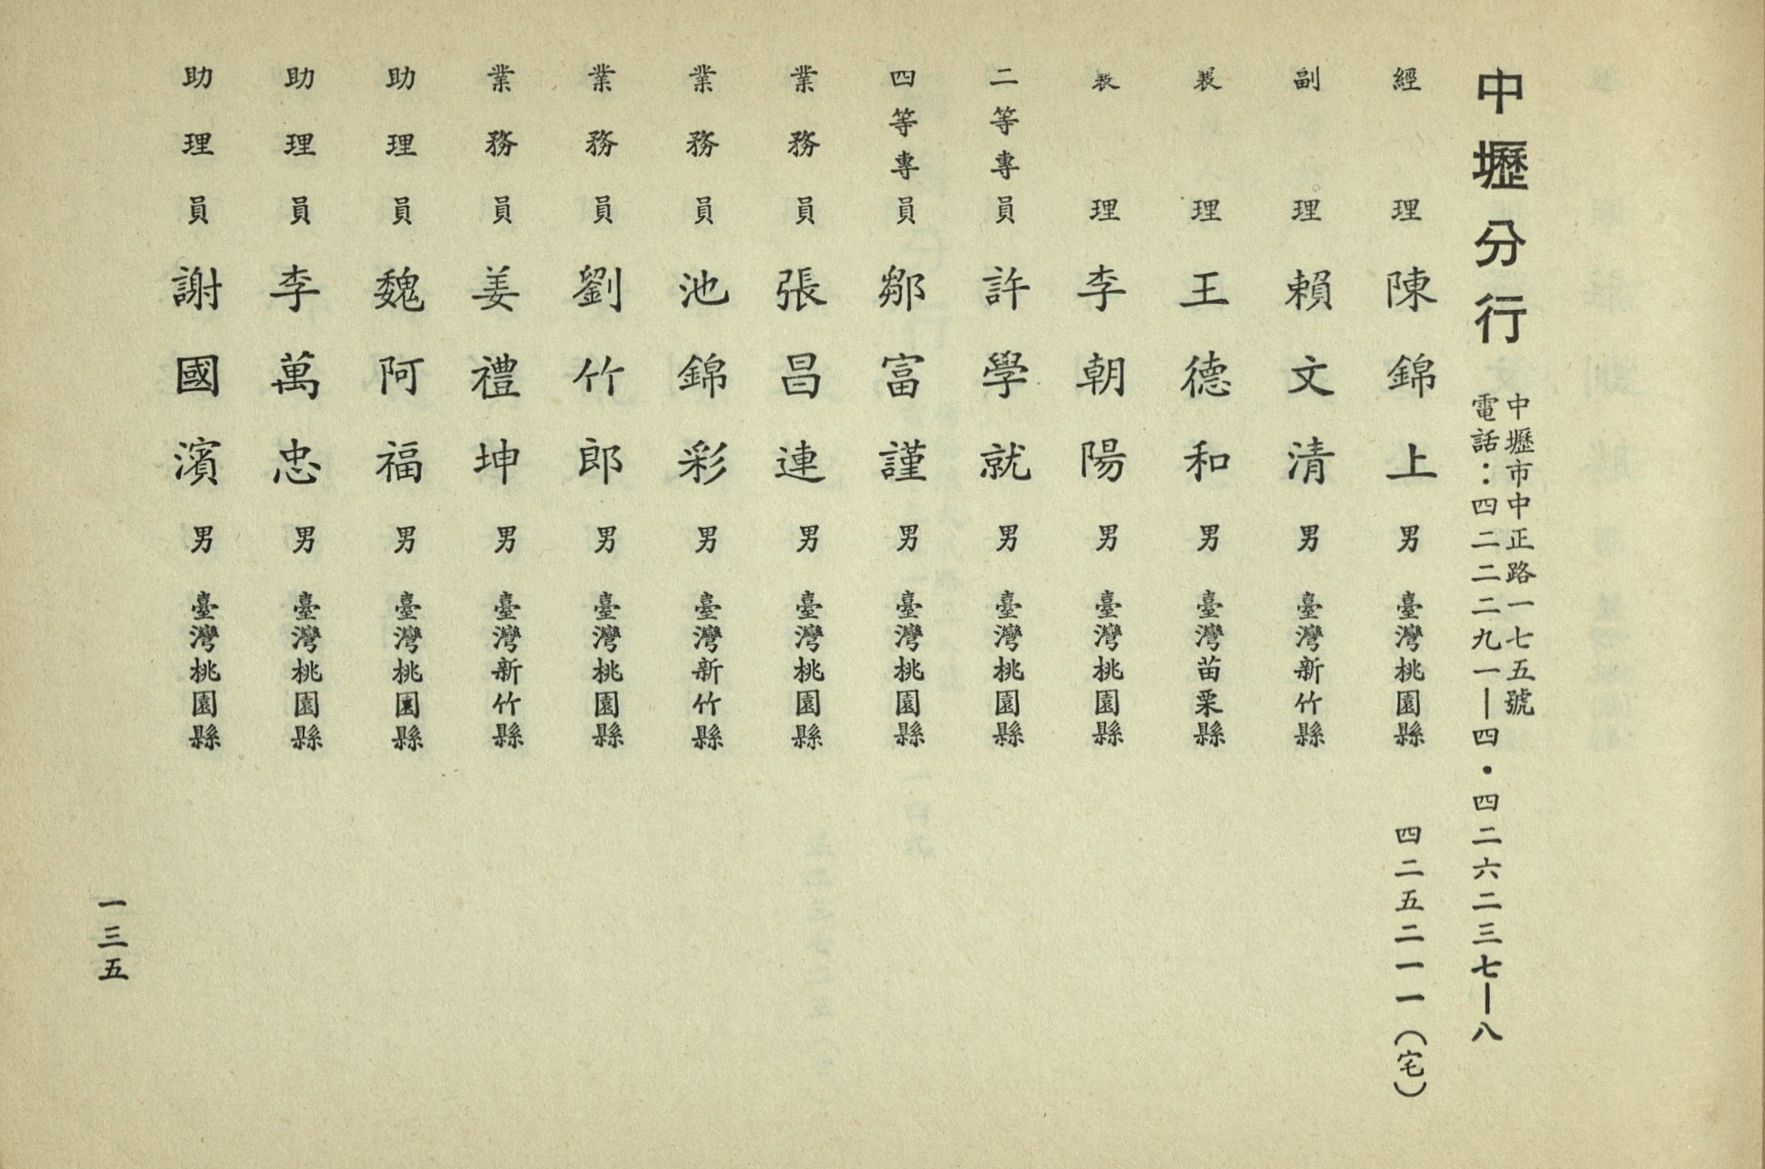 中壢分行
中壢市中正路一七五號
電話：四二二二九一—四・四二六二三七—八
經理 陳錦上 男 臺灣桃園縣 四二五二一一（宅）
副理 賴文清 男 臺灣新竹縣
襄理 王德和 男 臺灣苗栗縣
襄理 李朝陽 男 臺灣桃園縣
二等專員 許學就 男 臺灣桃園縣
四等專員 鄒富謹 男 臺灣桃園縣
業務員 張昌連 男 臺灣桃園縣
業務員 池錦彩 男 臺灣新竹縣
業務員 劉竹郎 男 臺灣桃園縣
業務員 姜禮坤 男 臺灣新竹縣
助理員 魏阿福 男 臺灣桃園縣
助理員 李萬忠 男 臺灣桃園縣
助理員 謝國濱 男 臺灣桃園縣
一三五